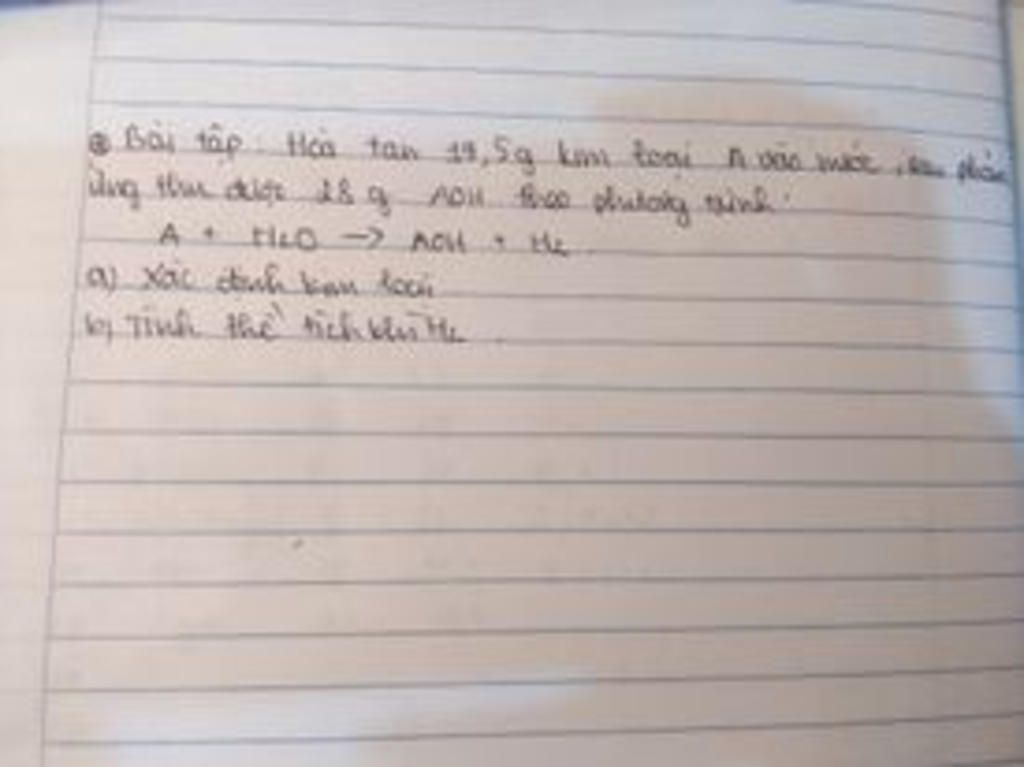 Bài tập: Hoà tan 19,5g kim loại A vào nước, sau phản
ứng thu được 28 g AOH theo phương trình:
A + H2O -> AOH + H2
a) Xác định kim loại
b) Tính thể tích khí H2